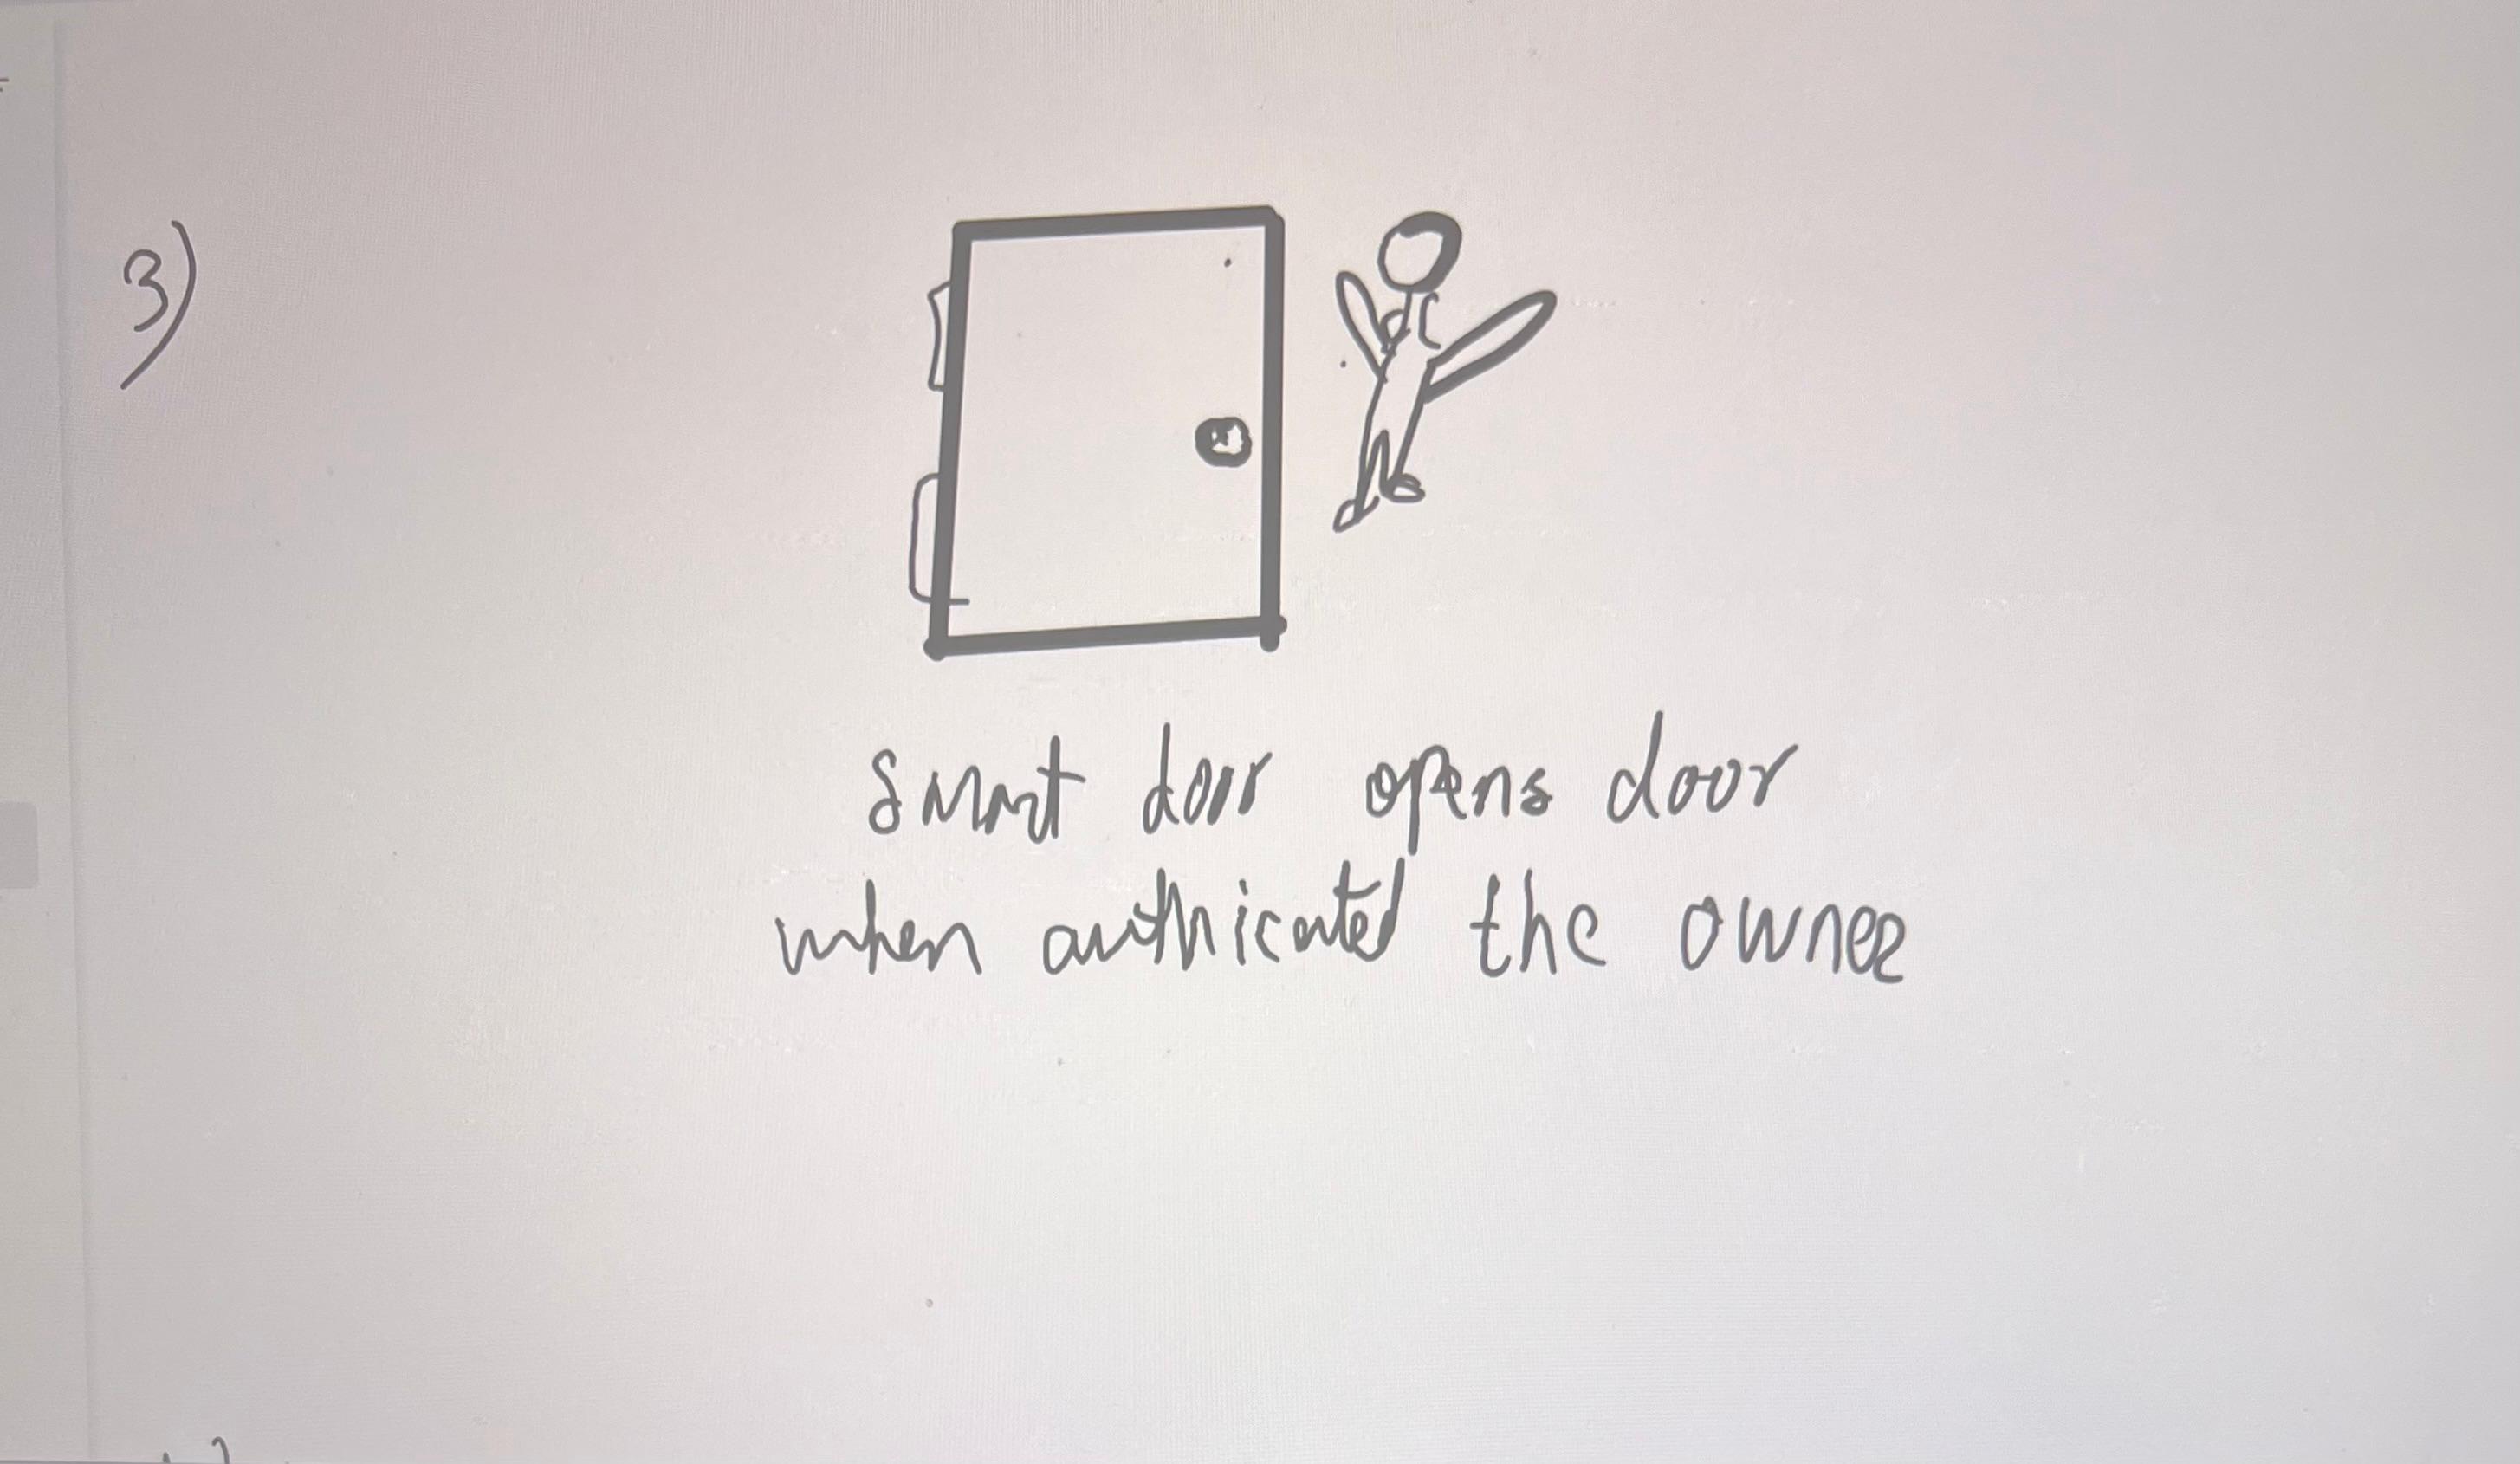 3)
smart door opens door
when authicated the owner